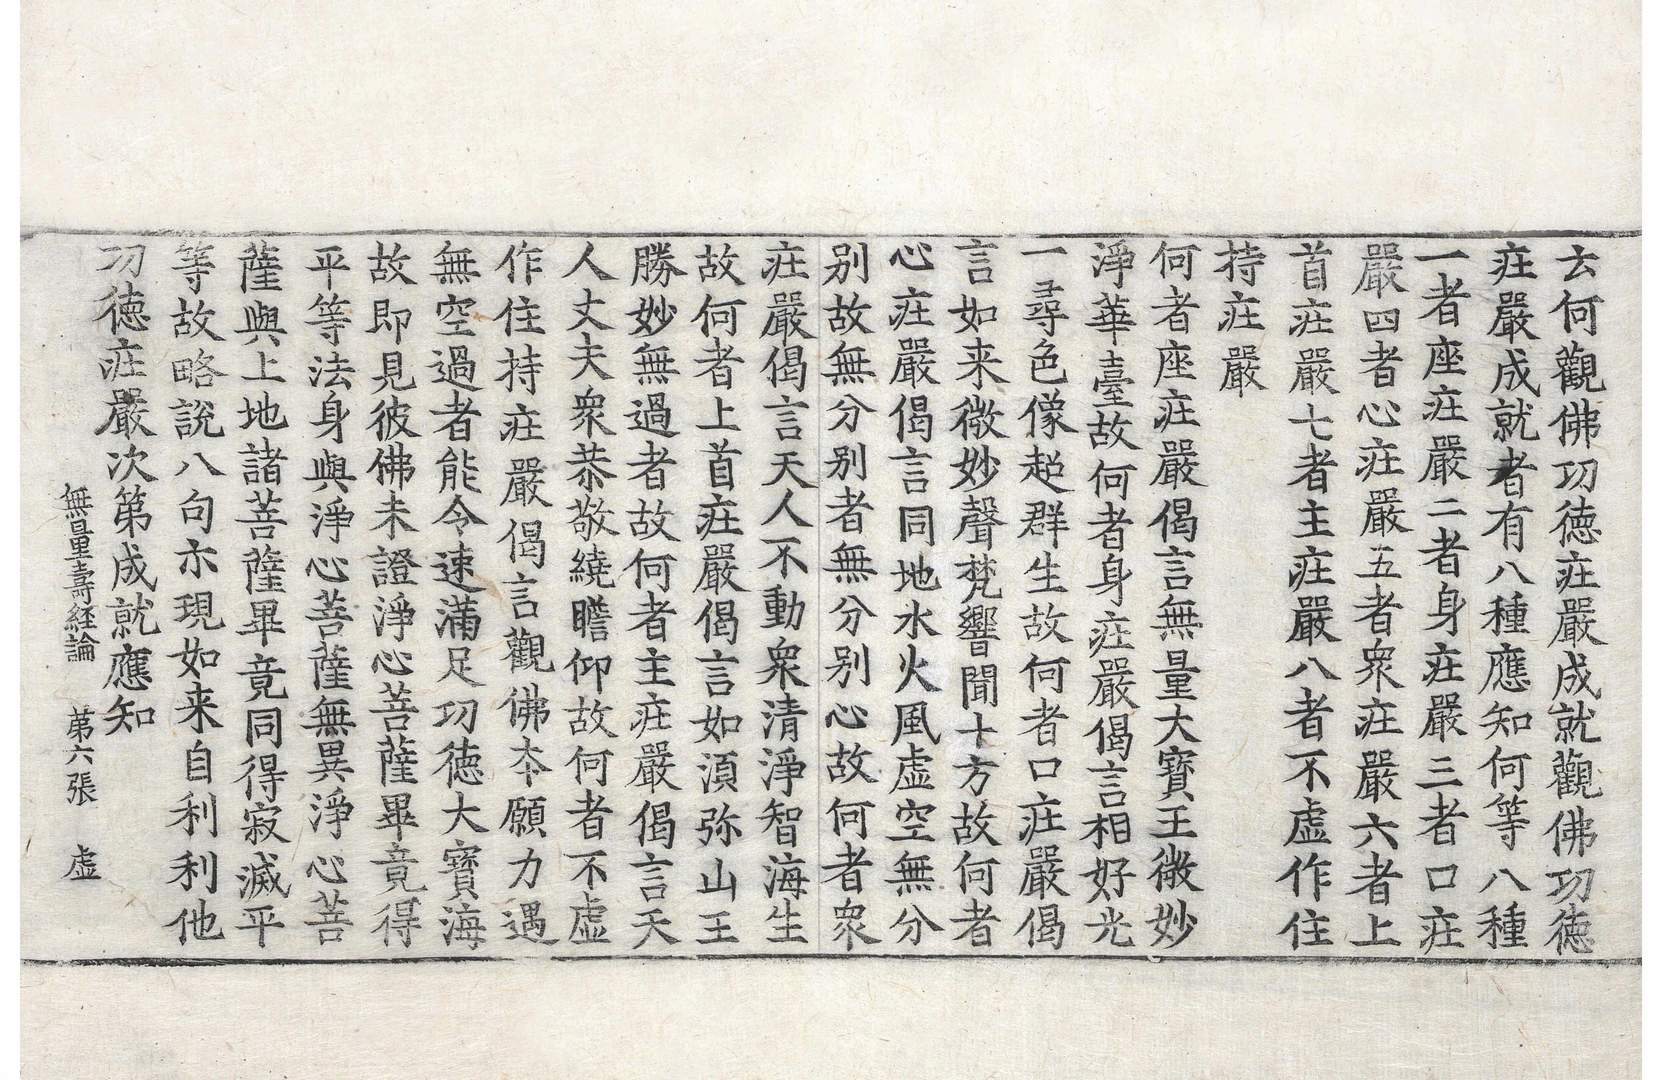 去何觀佛功德疘嚴成就觀佛功德
疘嚴成就者有八種應知何等八種
一者座疘嚴二者身疘嚴三者口疘
嚴四者心疘嚴五者衆疘嚴六者上
首疘嚴七者主疘嚴八者不虚作住
持疘嚴
何者座疘嚴偈言無量大寳王微妙
淨華臺故何者身疘嚴偈言相好光
一尋色像超群生故何者口疘嚴偈
言如来微妙聲梵響聞十方故何者
心疘嚴偈言同地水火風虚空無分
别故無分别者無分别心故何者衆
疘嚴偈言天人不動衆清淨智海生
故何者上首疘嚴偈言如湏弥山王
勝妙無過者故何者主疘嚴偈言天
人丈夫衆恭敬繞瞻仰故何者不虚
作住持疘嚴偈言觀佛夲願力遇
無空過者能令速滿足功德大寳海
故即見彼佛未證淨心菩薩畢竟得
平等法身與淨心菩薩無異淨心菩
薩與上地諸菩薩畢竟同得寂滅平
等故略說八句示現如来自利利他
功德疘嚴次第成就應知
無量壽経論 第六張 虚